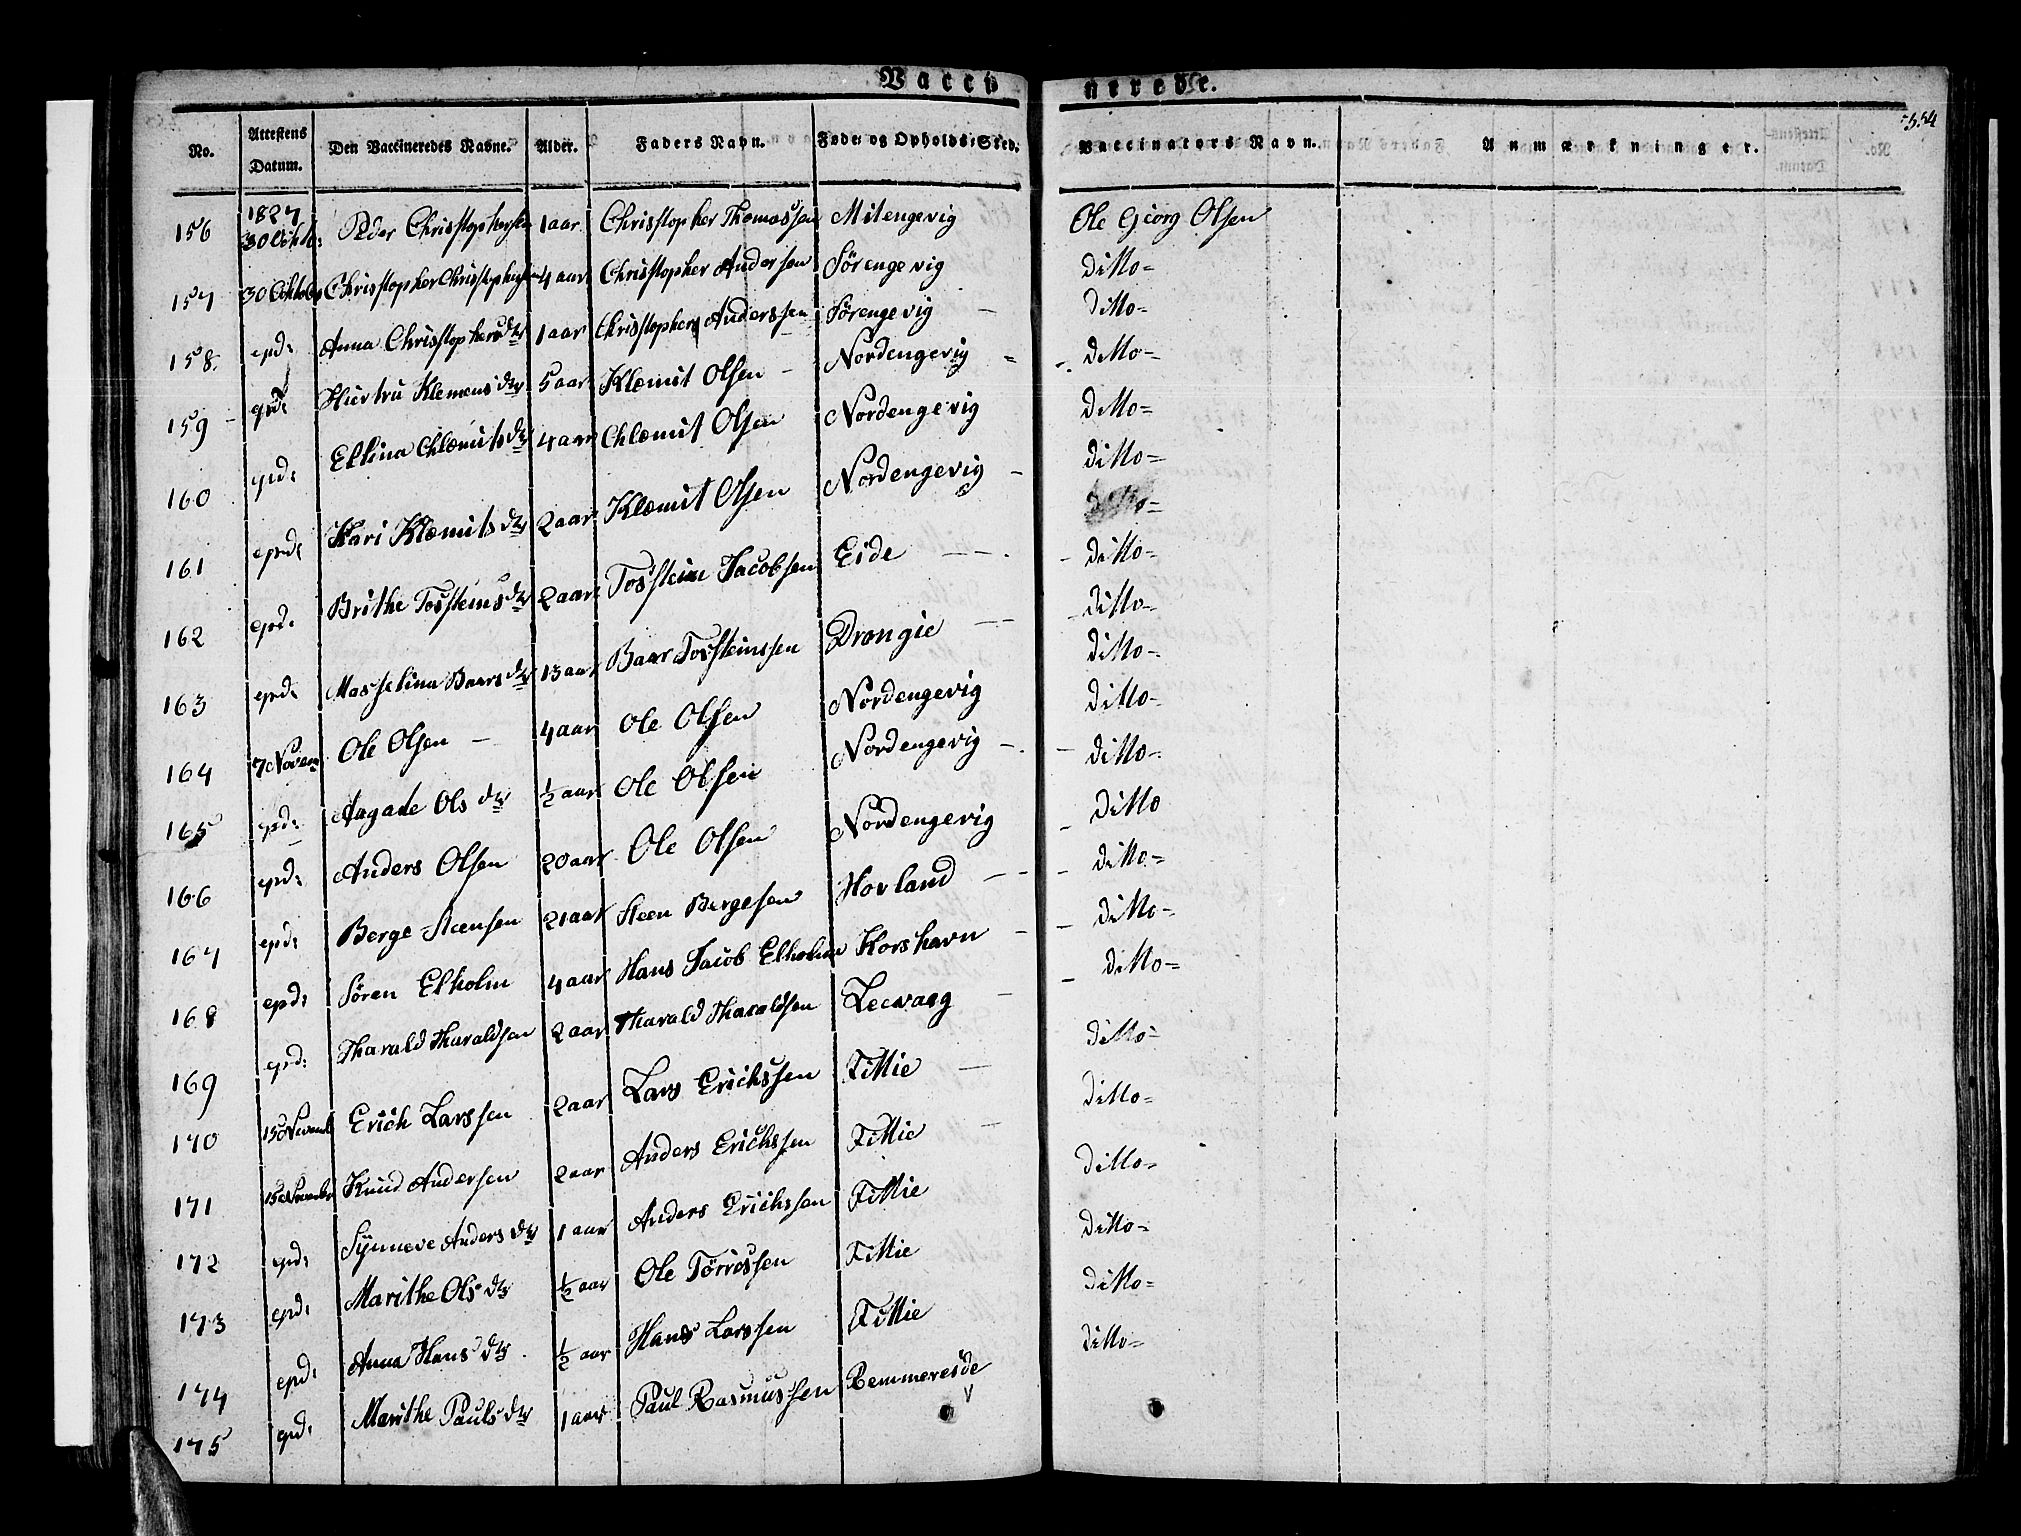 Vacci nerede.
554
No. Attestens Datum. Den Vaccineredes Navne. Alder. Faders Navn. Føde- og Opholds-Sted. Vaccinators Navn. Anmærkninger.
1827
156 30 Peder 1 aar Christopher Thomassen Milengevig Ole Georg Olsen
157 30 Christopher 4 aar Christopher Andersen Sörengevig ditto=
158. epd: Anna Christophersdtr 1 aar Christophers Anderssen Sörengevig ditto=
159 epd: Klemens dtr 5 aar Klæmit Olsen Nordengevig ditto=
160 epd: Ellina Chlæmits dtr 4 aar Chlæmit Olsen Nordengevig ditto=
161 epd: Kari Klæmits dtr 2 aar Klæmit Olsen Nordengevig ditto=
162 epd: Brithe Tossteins dtr 2 aar Tosstein Jacobsen Eide ditto=
163 epd: Baars dtr 13 aar Baar Tossteinssen Drongie ditto=
164 7 Novem Ole Olsen 4 aar Ole Olsen Nordengevig ditto=
165 epd: Aagade Ols dtr ½ aar Ole Olsen Nordengevig ditto=
166 epd: Anders Olsen 20 aar Ole Olsen Nordengevig ditto=
167 epd: Berge Steensen 21 aar Steen Bergesen Hovland ditto
168 epd: Sören Elholm 4 aar Hans Jacob Elholm Korshavn ditto=
169 epd: Tharald Tharaldsen 2 aar Tharald Tharaldsen Leevaag ditto=
170 15 Erich Larssen 2 aar Lars Erichssen Fittie ditto=
171 15 Knud Andersen 2 aar Anders Erichssen Fittie ditto=
172 epd: Synneve Anders dtr 1 aar Anders Erichssen Fittie ditto=
173 epd: Marithe Ols dtr ½ aar Ole Törrissen Fittie ditto=
174 epd: Anna Hans dtr ½ aar Hans Larssen Fittie ditto=
175 epd: Marithe Pauls dtr 1 aar Paul Rasmussen Remmereside ditto=